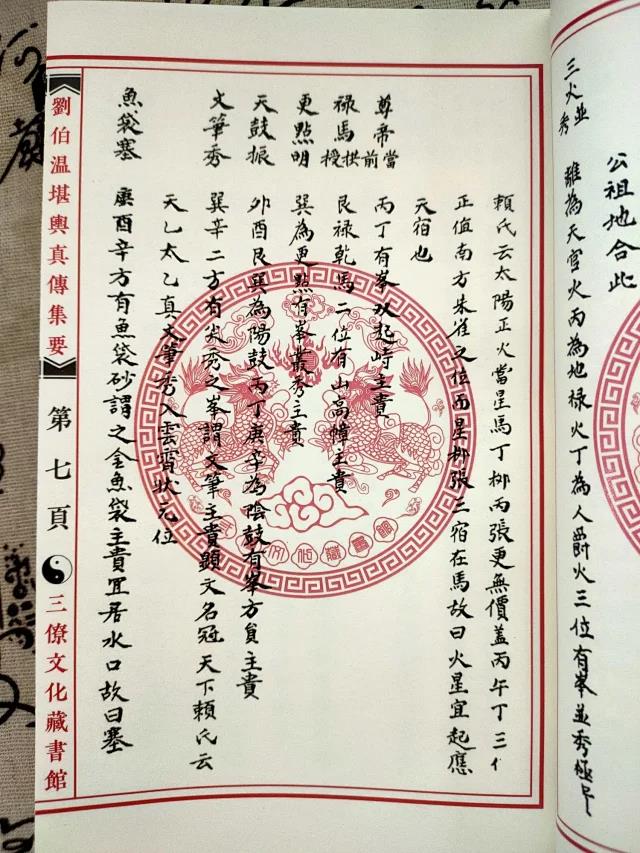 三火並秀
離為天宮火丙為地祿火丁為人爵火三位有峯並秀極
公祖地合此
賴氏云太陽正火當星馬丁柳丙張更無價蓋丙午丁三
正值南方朱雀之位而星柳張三宿在馬故曰火星宜起應
天宿也
尊帝當前
丙丁有峯双起峙主貴
祿馬拱授
艮祿乾馬二位有山高幛主貴
更點明
巽為更點有峯叢秀主貴
天鼓振
卯酉艮巽為陽鼓丙丁庚辛為陰鼓有峯方負主貴
文筆秀
巽辛二方有尖秀之峯謂文筆主貴顕文名冠天下賴氏云
天乙太乙真文筆秀入雲霄狀元位
魚袋塞
庚酉辛方有魚袋砂謂之金魚袋主貴宜居水口故曰塞
劉伯温堪輿真傳集要
第七頁
三僚文化藏書館